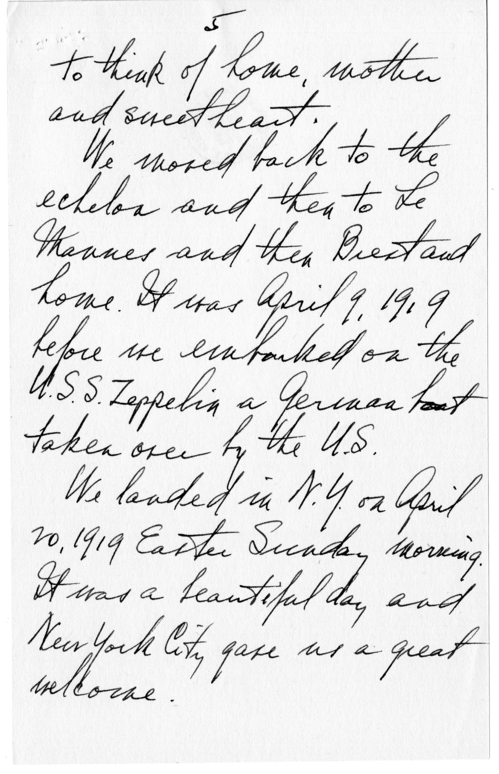 5
to think of home, mother
and sweetheart.
We moved back to the
echelon and then to Le
Mannes and then Brest and
home. It was April 9, 1919
before we embarked on the
U.S.S. Zeppelin a German boat
taken over by the U.S.
We landed in N.Y. on April
20, 1919 Easter Sunday morning.
It was a beautiful day and
New York City gave us a great
welcome.